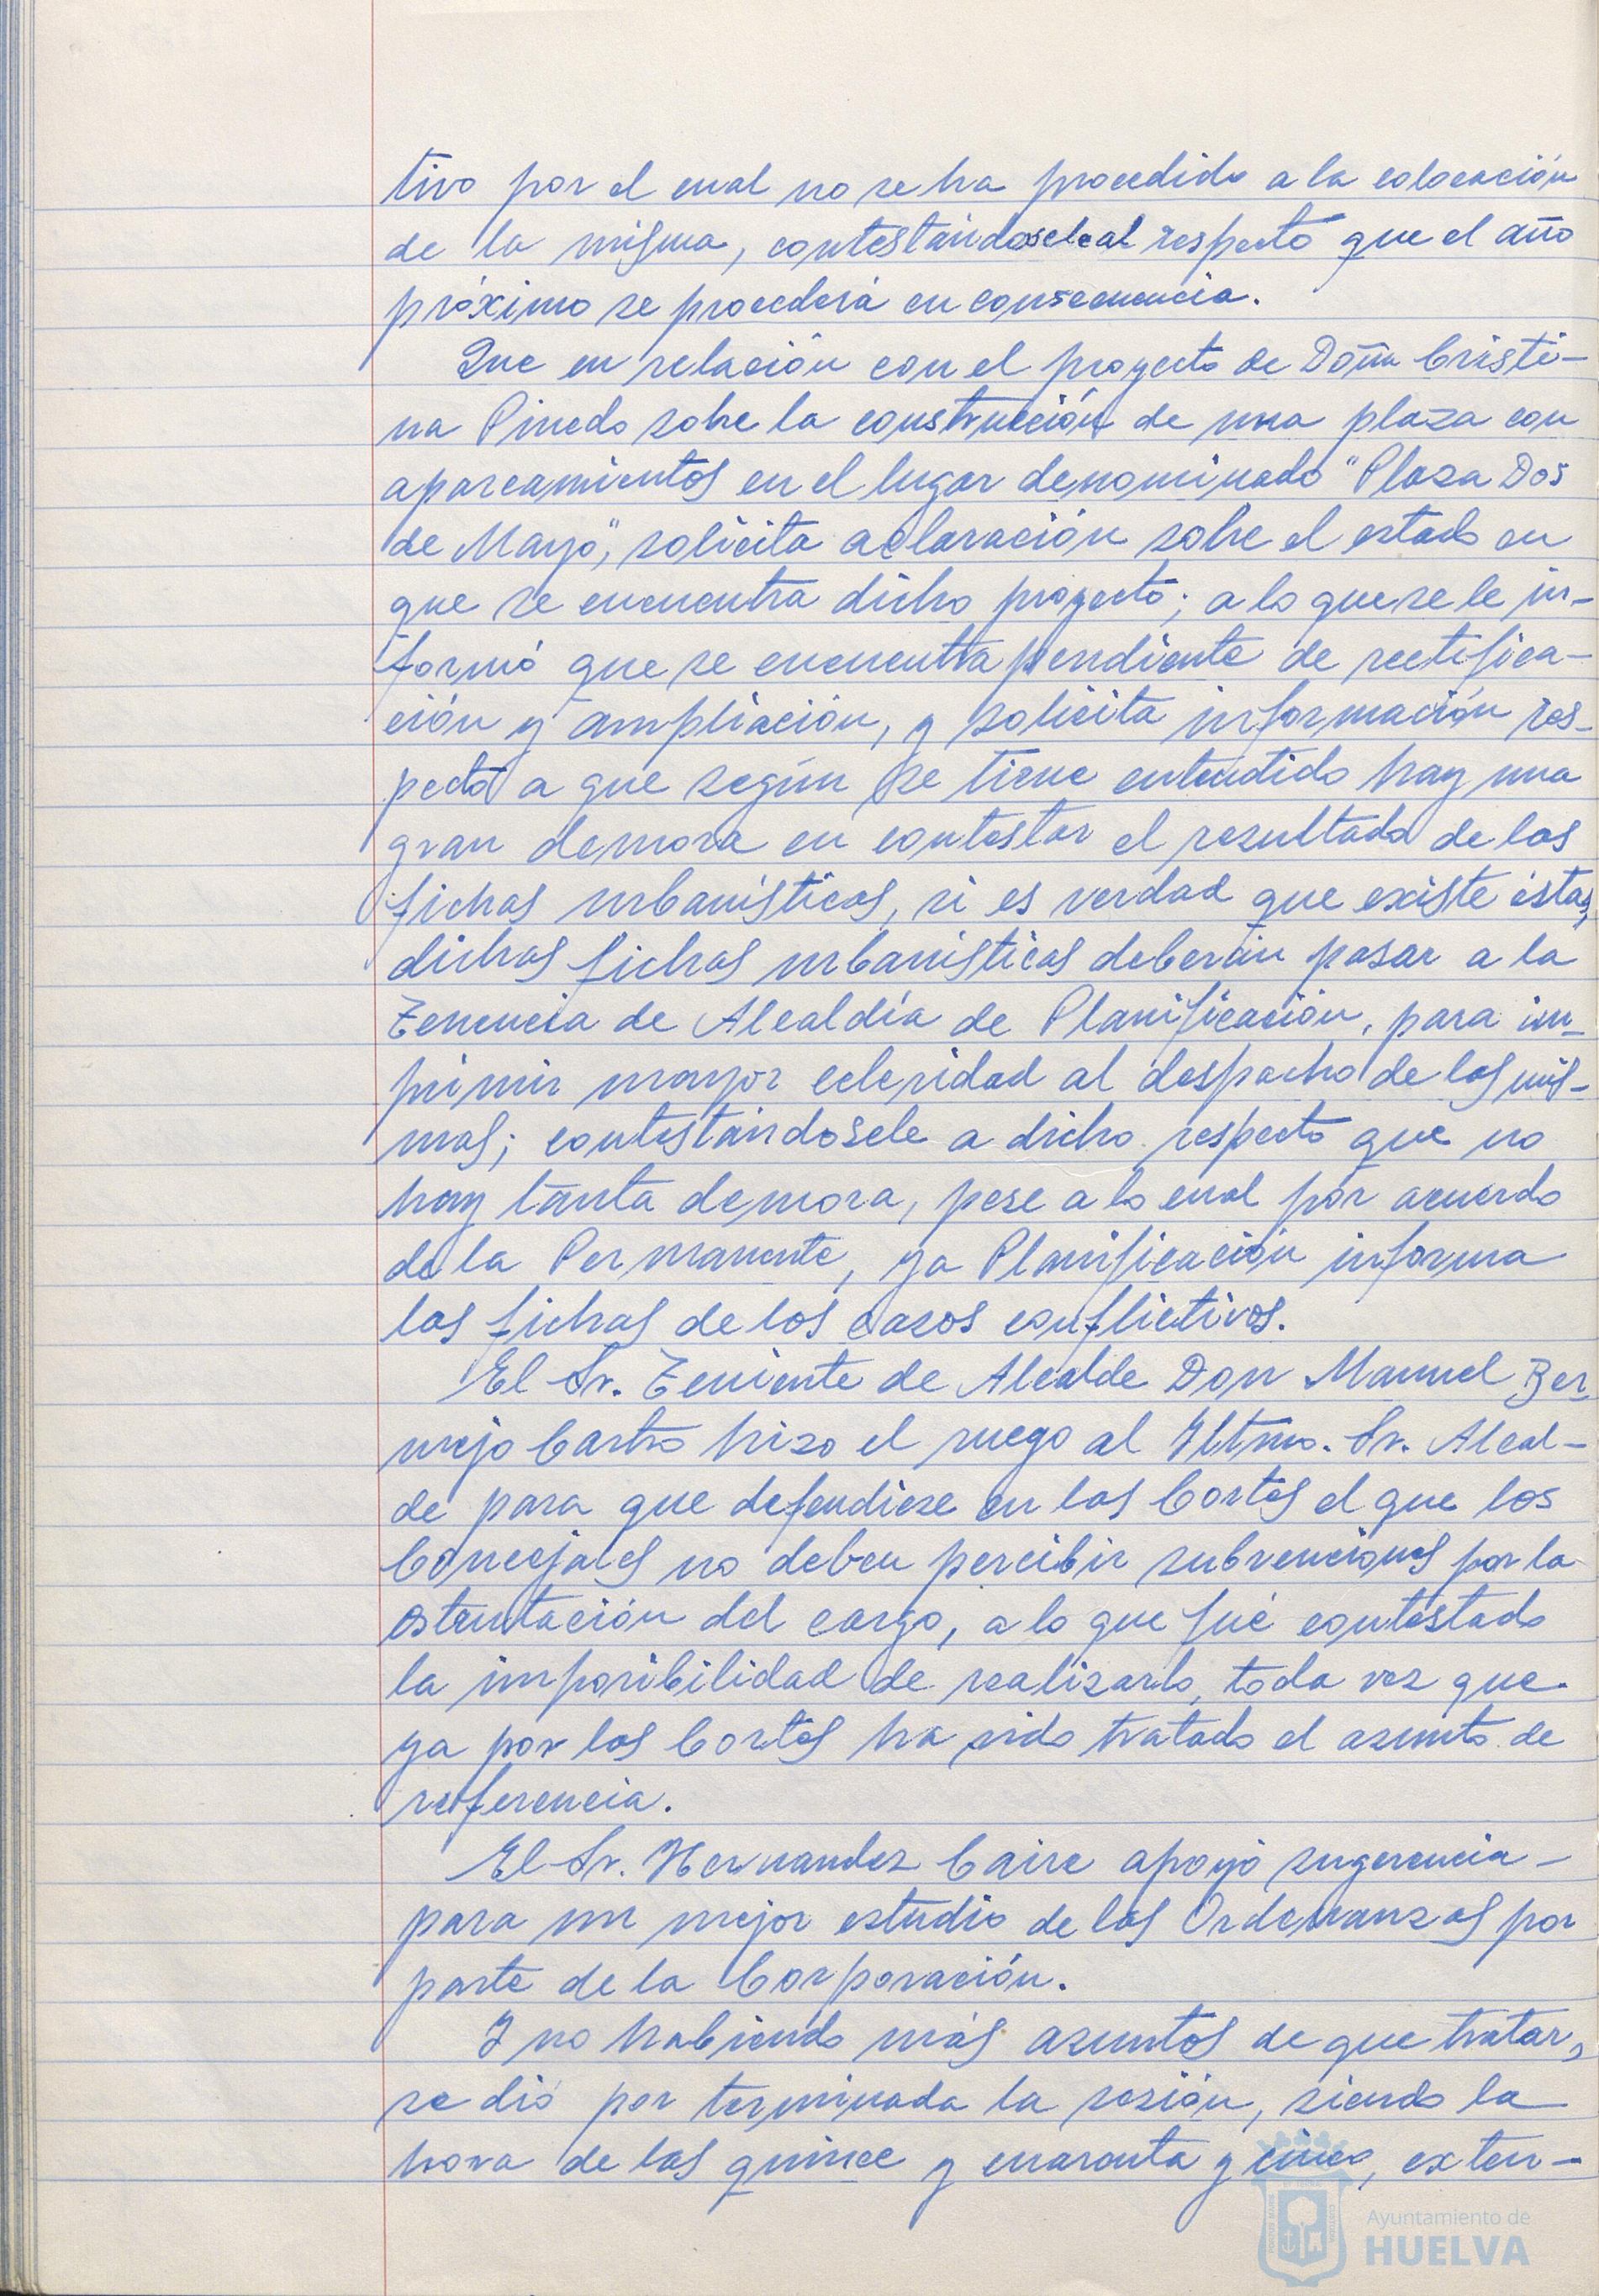 tivo por el cual no se ha procedido a la colocación
de la misma, contestándosele al respecto que el año
próximo se procederá en consecuencia.
Que en relación con el proyecto de Doña Cristi-
na Pinedo sobre la construcción de una plaza con
aparcamientos en el lugar denominado "Plaza Dos
de Mayo", solicita aclaración sobre el estado en
que se encuentra dicho proyecto; a lo que se le in-
formó que se encuentra pendiente de rectifica-
ción y ampliación, y solicita información res-
pecto a que según se tiene entendido hay una
gran demora en contestar el resultado de las
fichas urbanísticas, si es verdad que existe ésta,
dichas fichas urbanísticas deberán pasar a la
Tenencia de Alcaldía de Planificación, para im-
primir mayor celeridad al despacho de las mis-
mas; contestándosele a dicho respecto que no
hay tanta demora, pese a lo cual por acuerdo
de la Permanente, ya Planificación informa
las fichas de los casos conflictivos.
El Sr. Teniente de Alcalde Don Manuel Ber-
mejo Castro hizo el ruego al Iltmo. Sr. Alcal-
de para que defendiese en las Cortes el que los
Concejales no deben percibir subvenciones por la
ostentación del cargo, a lo que fué contestado
la imposibilidad de realizarlo, toda vez que
ya por las Cortes ha sido tratado el asunto de
referencia.
El Sr. Hernandez Caire apoyó sugerencia -
para un mejor estudio de las Ordenanzas por
parte de la Corporación.
Y no habiendo más asuntos de que tratar,
se dió por terminada la sesión, siendo la
hora de las quince y cuarenta y cinco, exten-
Ayuntamiento de
HUELVA